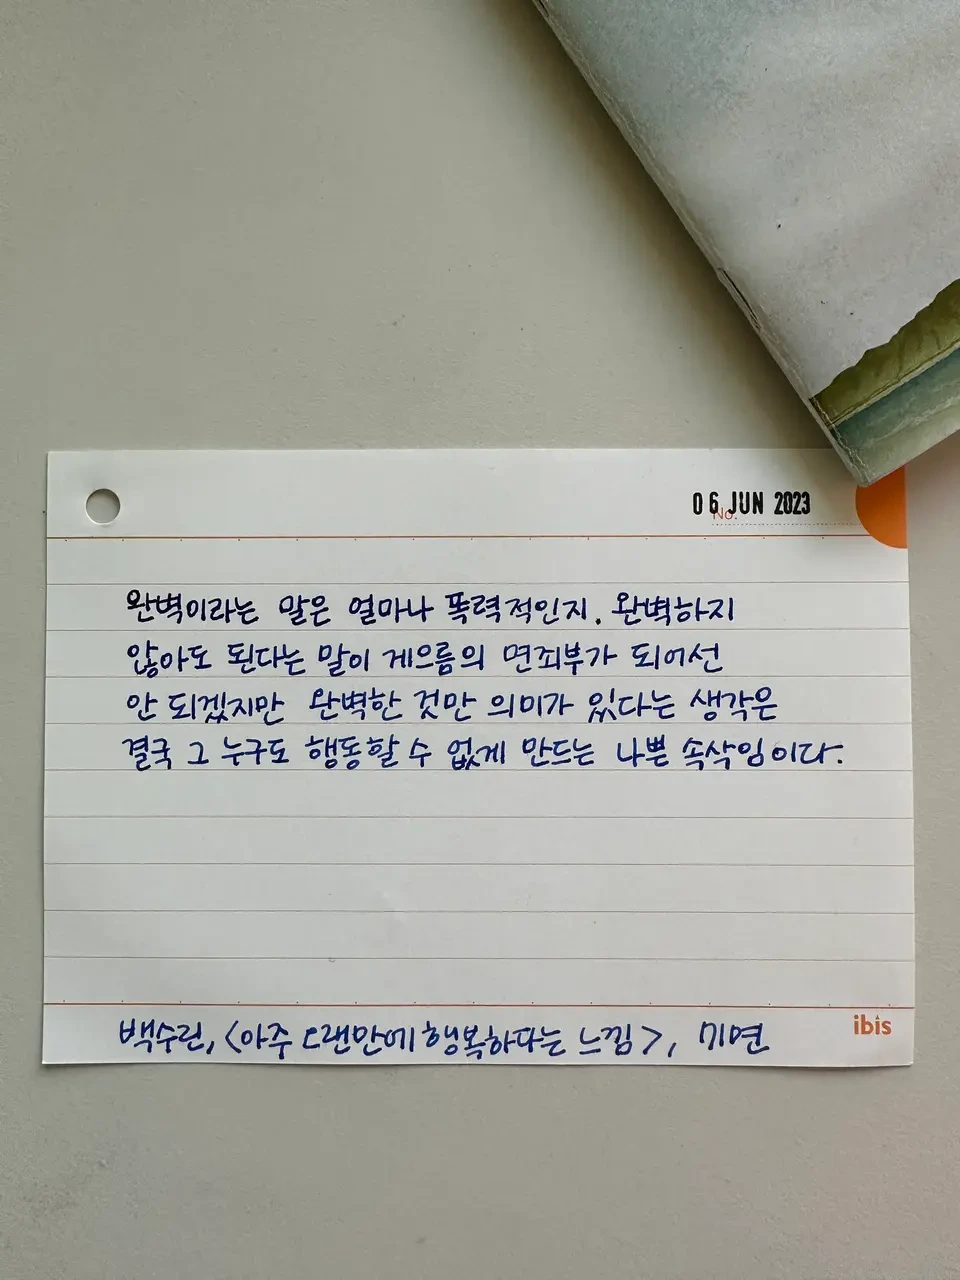 06 JUN 2023
No.
완벽이라는 말은 얼마나 폭력적인지. 완벽하지
않아도 된다는 말이 게으름의 면죄부가 되어선
안 되겠지만 완벽한 것만 의미가 있다는 생각은
결국 그 누구도 행동할 수 없게 만드는 나쁜 속삭임이다.
ibis
백수린, <아주 오랜만에 행복하다는 느낌>, 71면